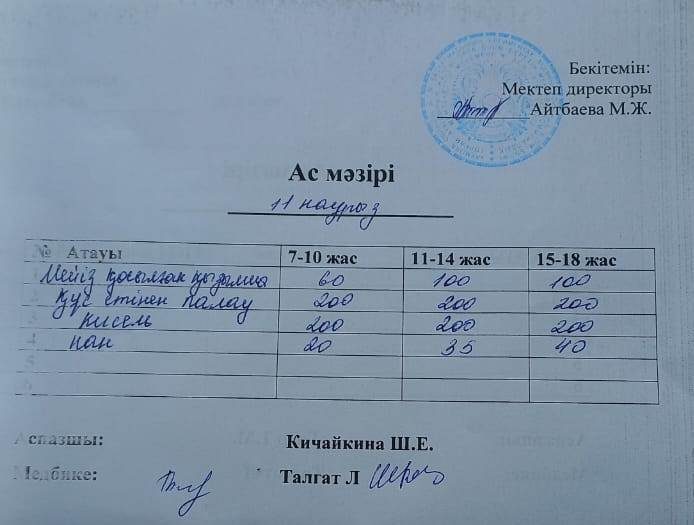 Бекітемін:
Мектеп директоры
Айтбаева М.Ж.
Ас мәзірі
11 наурыз
№ Атауы 7-10 жас 11-14 жас 15-18 жас
1 Мейіз қосылған 60 100 100
2 Құс етінен палау 200 200 200
3 кисель 200 200 200
4 нан 20 35 40
5
6
Аспазшы: Кичайкина Ш.Е.
Медбике: Талгат Л